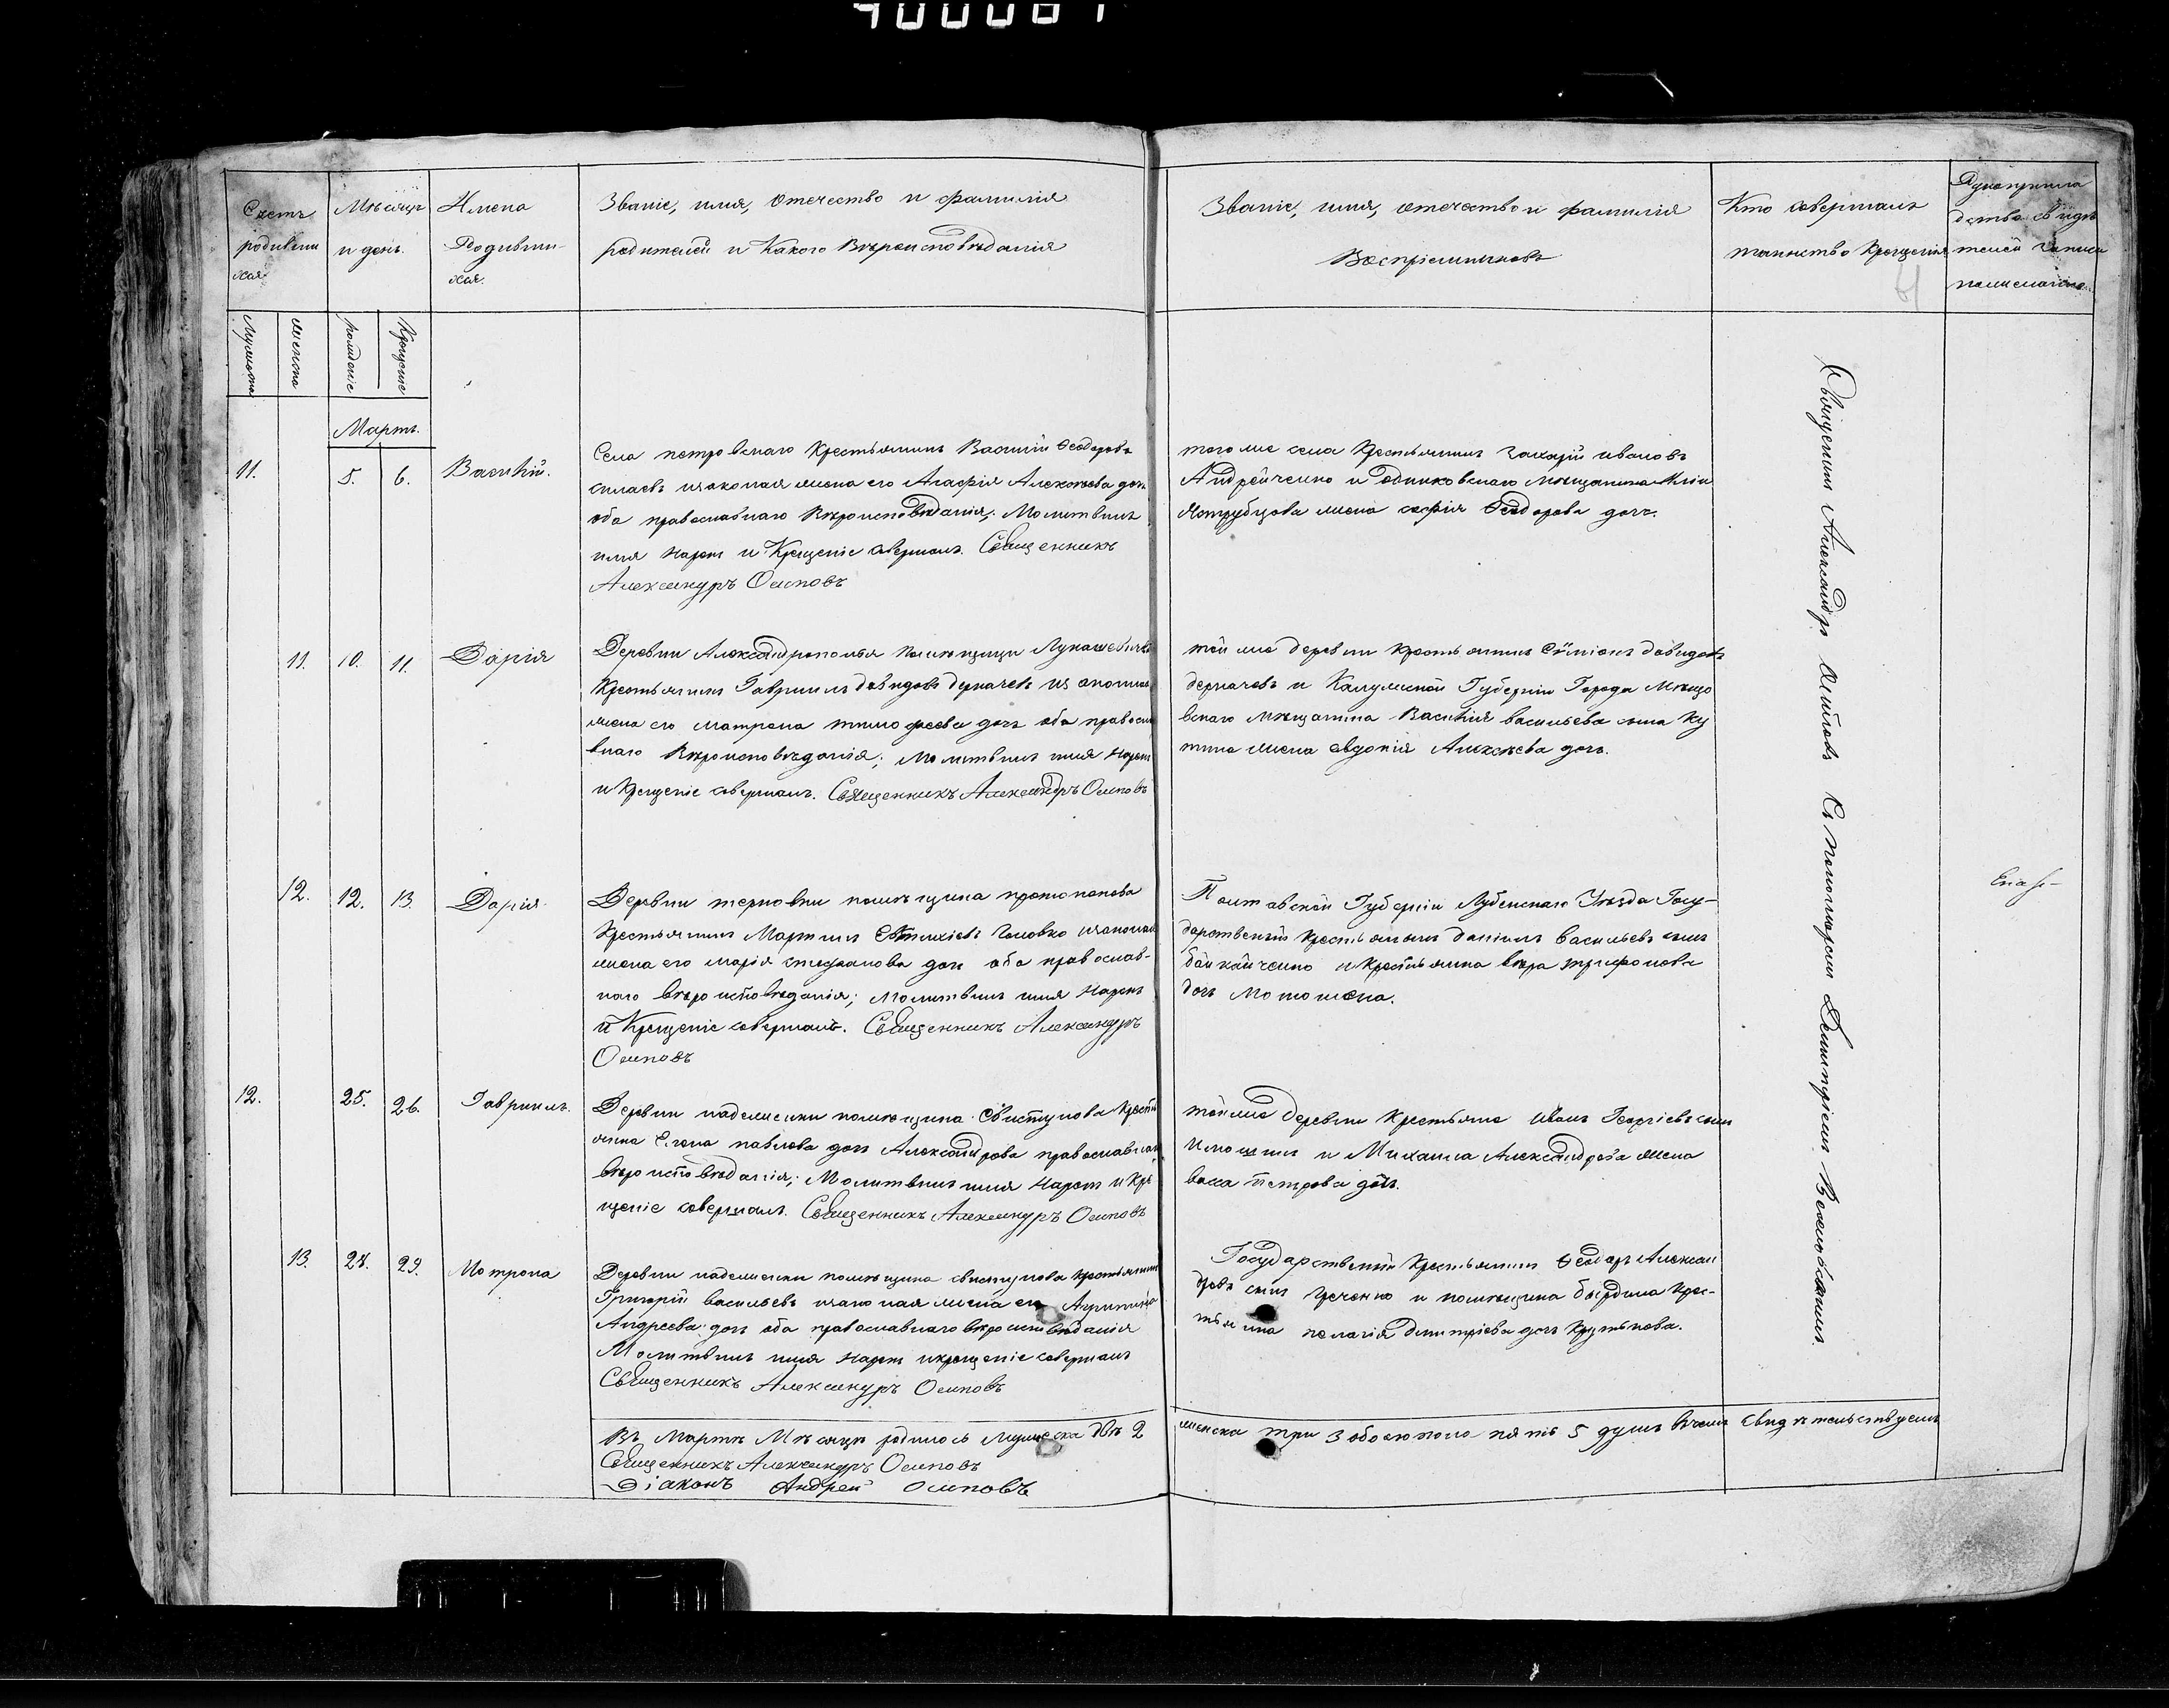 400087
Счетъ родившихся
Мѣсяцъ и день.
Имена Родившихся.
Званіе, имя, отечество и фамилія
родителей и какого вѣроисповѣданія
Званіе, имя, отечество и фамилія
Воспріемниковъ
Кто совершалъ
таинство крещенія
Рукоприкла
дства свидѣ
телей записи
по желанію.
Мужеска
женска
рожденіе
Крещеніе
Мартъ.
11.
5.
6.
Василій.
Села петровскаго Крестьянинъ Василій Ѳеодоровъ
силаевъ изаконая жена его Агафія Алексѣева доч
оба православнаго вѣроисповѣданія; Молитвилъ
имя нарекъ и Крещеніе совершалъ. Священникъ
Александръ Осиповъ
того же села Крестьянинъ захарій ивановъ
Андрейченко и
Ястребцова жена софія Ѳеодорова доч.
11.
10.
11.
Дарія
Деревни Александрополья помѣщицы Лукашевичевой
Крестьянинъ Гавриилъ давидовъ дергачевъ изаконная
жена его матрона тимофеева доч оба правосла
внаго Вѣроисповѣданія; Молитвилъ имя нарекъ
и Крещеніе совершалъ. Священникъ Александръ Осиповъ
той же деревни крестьянинъ Сѵмеонъ давидовъ
дергачевъ и Калужской Губерніи Города Мѣщо
вскаго мѣщанина Василія васильева сына Ку
тина жена евдокія Алексѣева доч.
12.
12.
13.
Дарія
Деревни терновки помѣщика протопопова
Крестьянинъ Мартинъ Евтихіевъ Головко изаконная
жена его марія стефанова доч оба православ-
наго вѣроисповѣданія; Молитвилъ имя нарекъ
и Крещеніе совершалъ. Священникъ Александръ
Осиповъ
Полтавской Губерніи Лубенскаго Уѣзда Госу-
дарственый крестьянинъ даніилъ васильевъ сынъ
байкайченко и крестьянка вѣра трифонова
доч
12.
25.
26.
Гавриилъ.
Деревни надежевки помѣщика Свистунова крестья
янка Елена павлова доч Александрова православнаго
вѣроисповѣданія; Молитвилъ имя Нарекъ и Кре
щеніе совершалъ. Священникъ Александръ Осиповъ
той же деревни Крестьяне Иванъ Георгіевъ сынъ
и Михаила Александрова жена
васса петрова доч.
13.
28.
29.
Мотрона
Деревни надежевки помѣщика свистунова крестьянинъ
Григорій васильевъ изаконая жена его Агрипина
Андреева доч оба православнаго вѣроисповѣданія
Молитвилъ имя нарекъ икрещеніе совершалъ
Священникъ Александръ Осиповъ
Государственый крестьянинъ Ѳеодоръ Алексан
дровъ сынъ Греченко и помѣщика бырдина крес-
тьянка пелагія димитріева доч
Въ Мартѣ Мѣсяцѣ родилось мужеска двѣ 2
женска три 3 обоего пола пять 5 душъ вчемъ свидѣтельствуемъ
Священникъ Александръ Осиповъ
Діаконъ Андрей Осиповъ
Священникъ Александръ Осиповъ Съ пономаремъ Димитріемъ